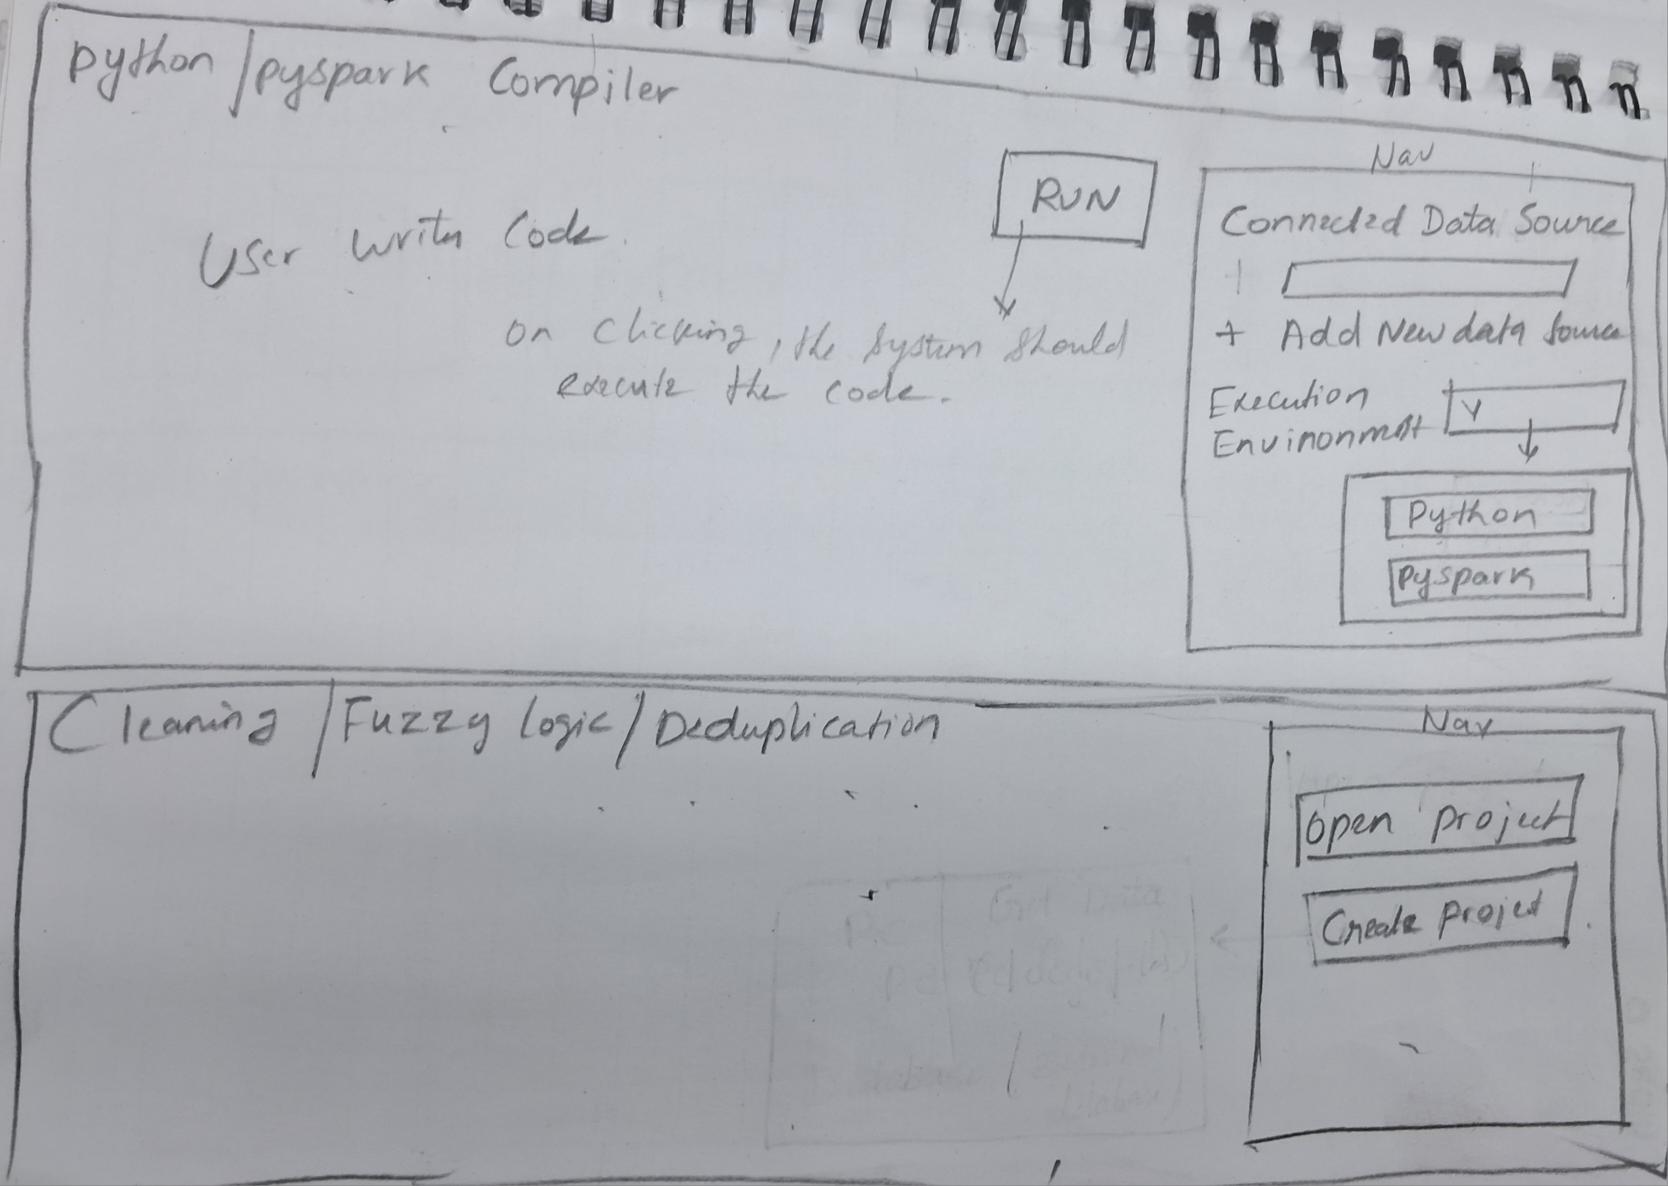 Python/pyspark Compiler
RUN
User writes Code.
on clicking, the system should
execute the code.
Nav
Connected Data Source
+ Add New data source
Execution
Environment
Python
Pyspark
Cleaning/Fuzzy logic/Deduplication
Nav
Open project
Create project